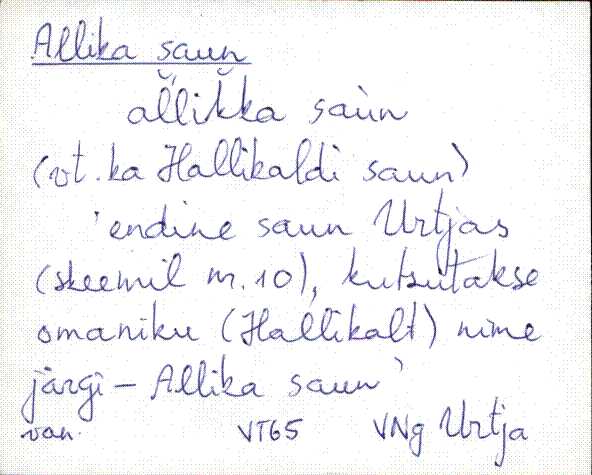 Allika saun
al̆likka saùn
(vt. ka Hallikaldi saun)
'endine saun Urtjas
(skeemil nr. 10), kutsutakse
omaniku (Hallikalt) nime
järgi – Allika saun'
van. VT65 VNg Urtja